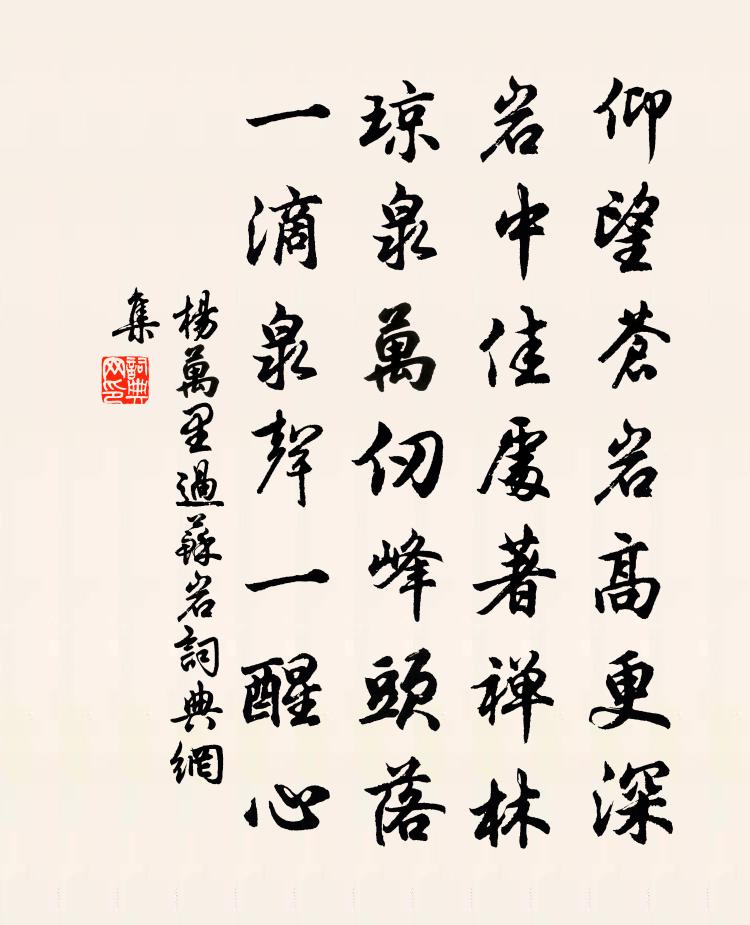 仰望蒼岩高更深
岩中佳處著禅林
琼泉萬仞峰頭落
一滴泉聲一醒心
楊萬里過蘇岩詞典網
集
詞典
网印